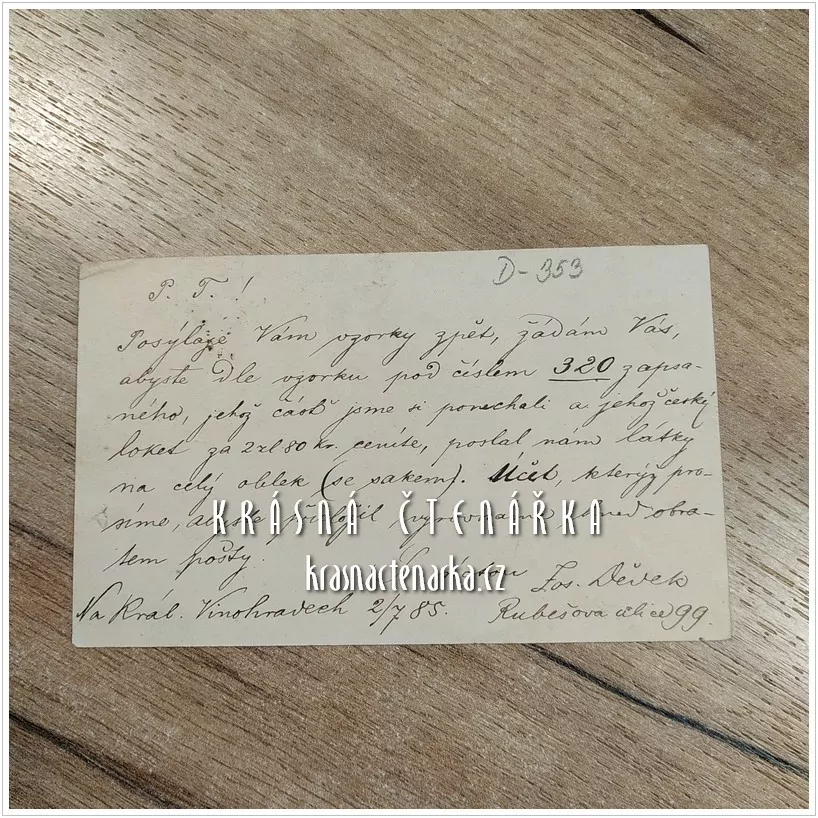 D-353
P. T. !
Posýlaje Vám vzorky zpět, žádám Vás,
abyste dle vzorku pod číslem 320 zapsa-
ného, jehož část jsme si ponechali a jehož český
loket za 2 zl 80 kr. ceníte, poslal nám látky
na celý oblek (se sakem). Účet, který pro-
síme, abyste přiložil vyrovnáme ihned obra-
tem pošty.
KRÁSNÁ ČTENÁŘKA
krasnactenarka.cz
Jos. Děvek
Na Král. Vinohradech 2/7 85.
Rubešova ulice 99.